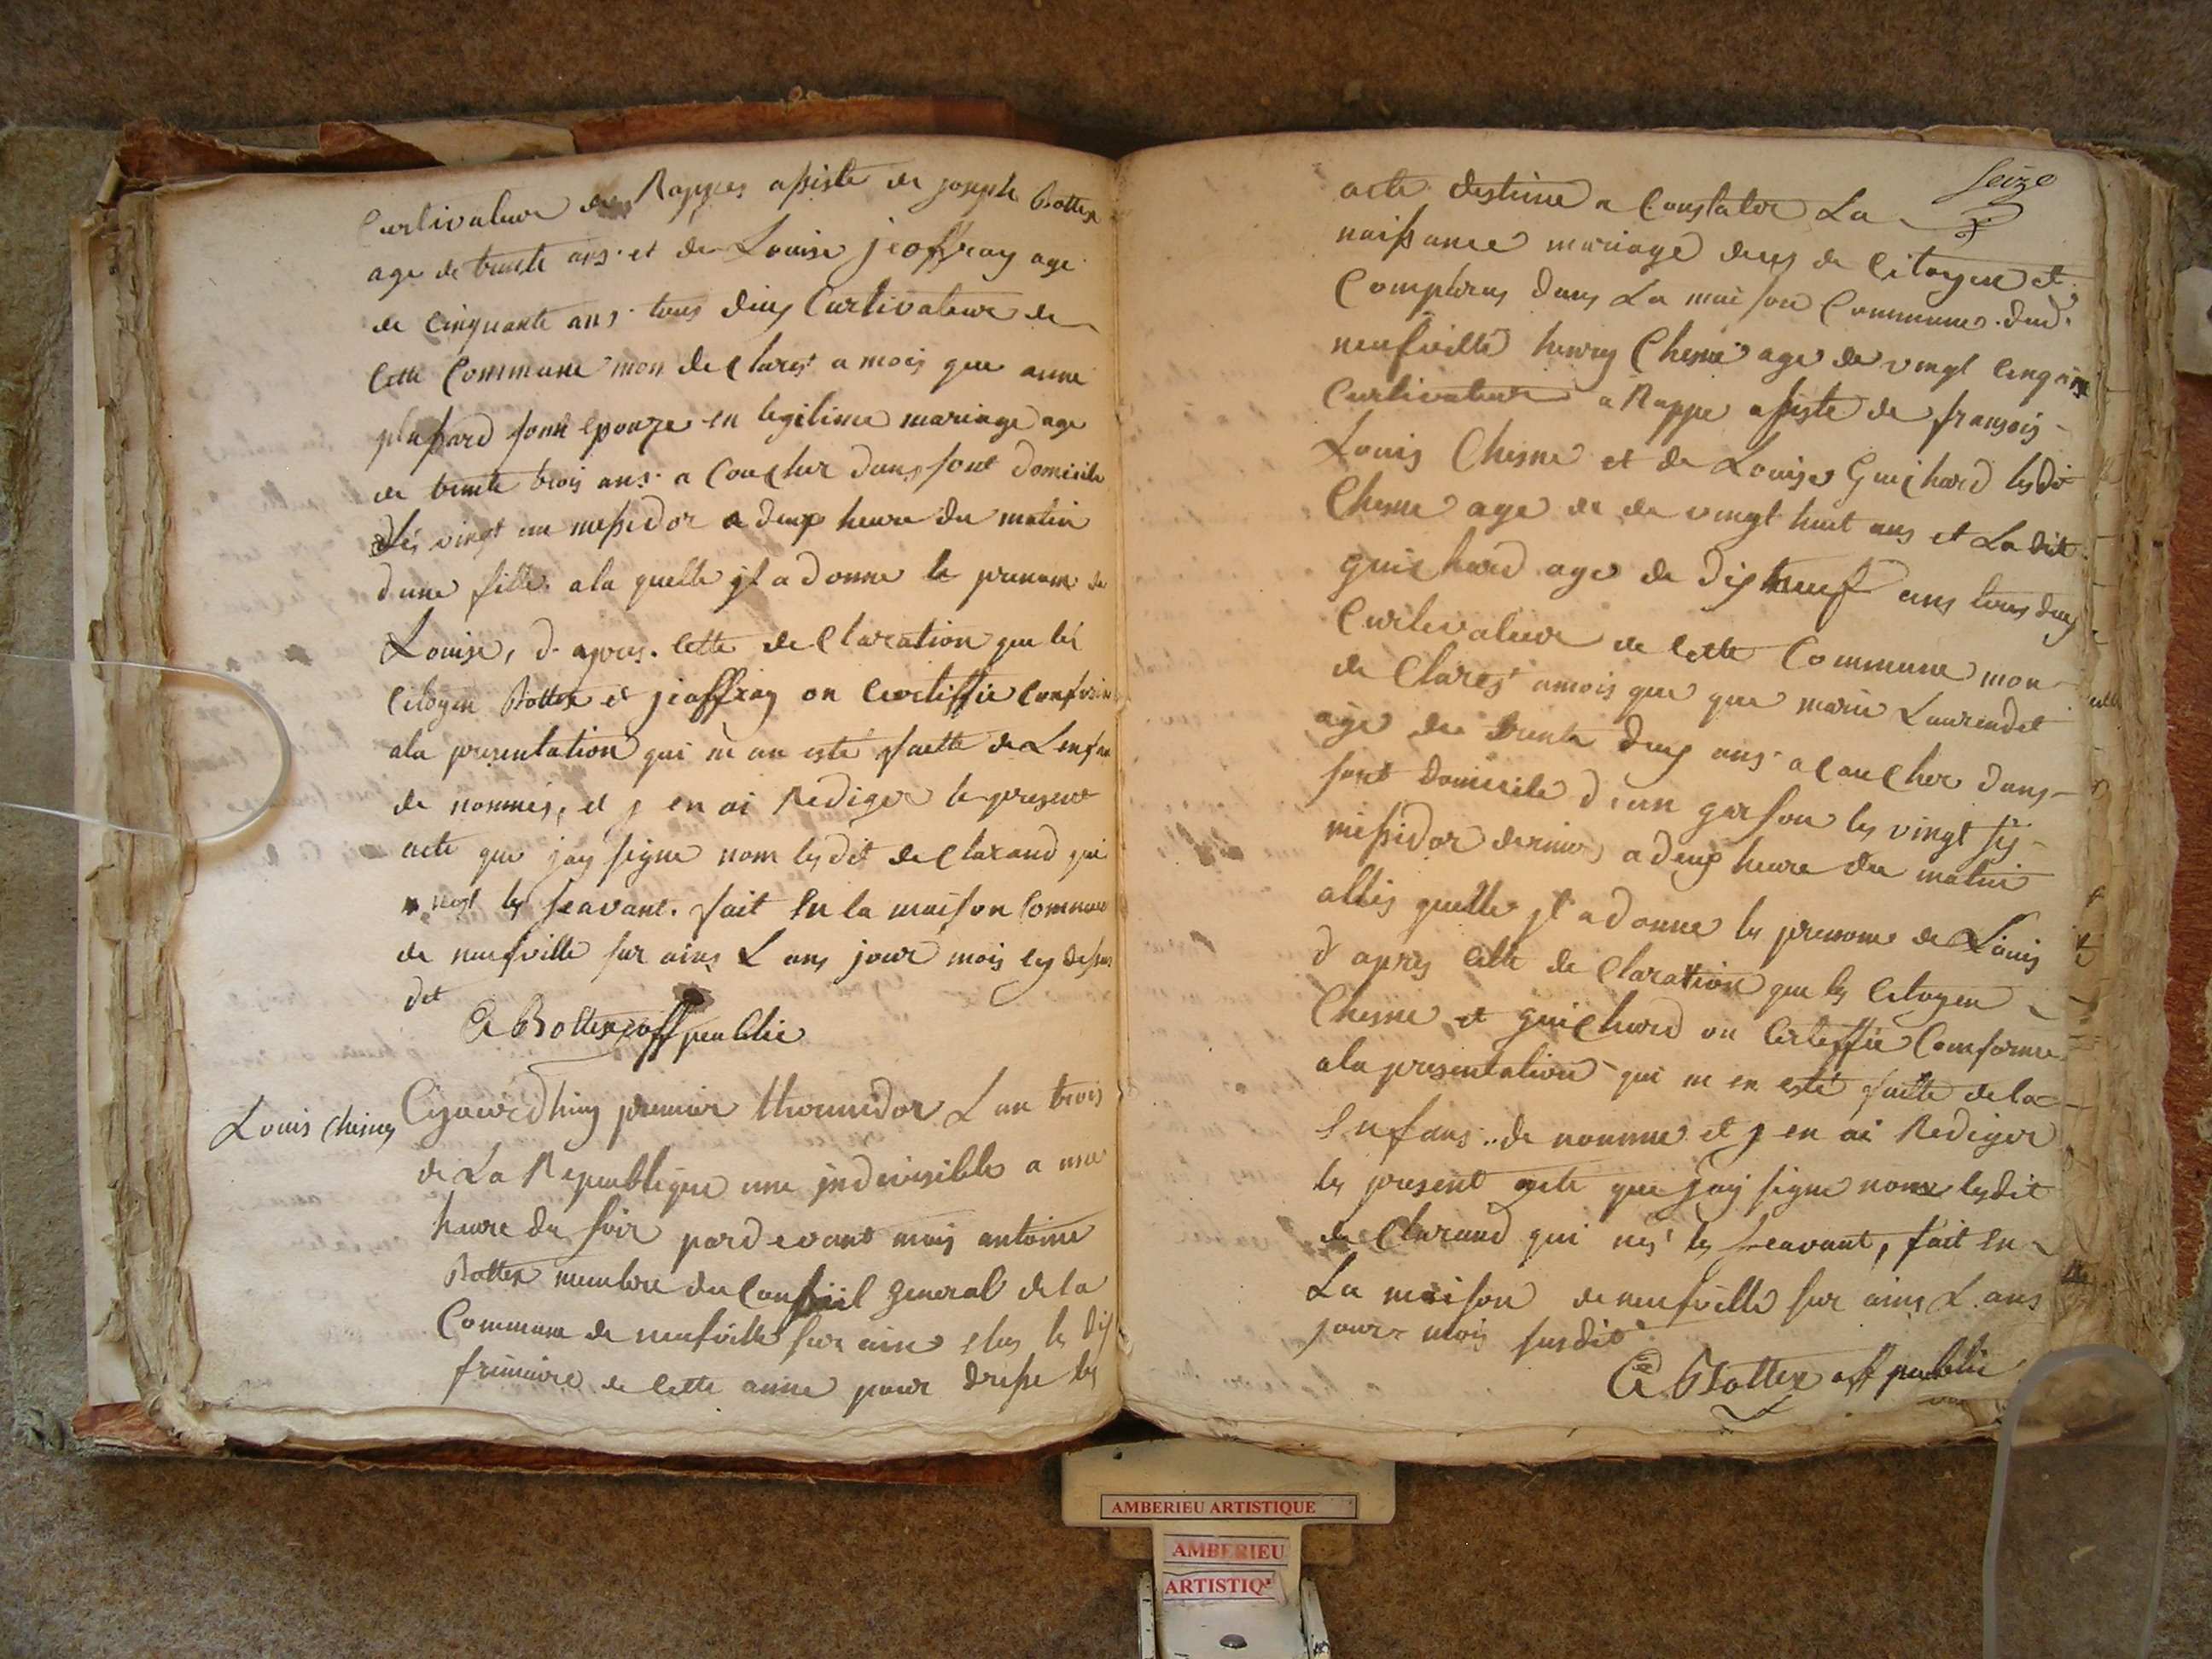 Curtivateur de Rappes assiste de joseph Bottex
age de trente ans et de Louise jeoffray age
de cinquante ans tous deus Curtivateur de
Cette Commune mon declares a mois que anne
plassard sont epouze en legitime mariage age
de trente trois ans a Coucher dans sont domicile
les vingt un messidor a deux heure du matin
dune fille ala quelle jl a donne le prenom de
Louise, d apres cette de Claration que les
Citoyen Bottex et jeaffray on Certiffie Conforme
ala presentation qui m an esté faitte de Lenfan
de nommés, et j en ai Rediger le present
acte que jay signe nom les dit de Clarand qui
nest les seavant. fait En la maison Commune
de neufville sur ains L ans jour mois les dessus
dit
A Bottex off publie
Louis Chesne
Ojourdhuy premier thermidor L an trois
de La Republique une jndivisible a une
heure du soir pardevant mois antoine
Bottex membre du Conseil general de la
Commune de neufville sur ain elus le dis
frimaire de cette anne pour dresse les
seize
acte destine a Constater La
naissance mariage deces de Citoyen et
Compferus dans La maison Commune dud
neufville henry Chesne age de vingt cinq ans
Curtivateur a Rappe assiste de fransois
Louis Chesne et de Louise Guichard les dit
Chesne age de de vingt huit ans et La dite
guichard age de dis neuf ans tous deus
Curtivateur de Cette Commune mon
de Clares amois que que marie Laurendet
age de trente deus ans a Coucher dans
sont domicile d un garson les vingt sis
messidor dernier a deux heure du matin
allis quelle jl a donne les prenom de Louis
d apres cette de Claration que les Citoyen
Chesne et guichard on Certiffie Comforme
ala presentation qui m en esté faitte de la
Enfans de nomme et j en ai Rediger
les present acte que jay signe nom les dit
de Clarand qui nes les seavant, fait En
La maison de neufville sur ains L ans
jour mois susdit
A Bottex off publie
AMBERIEU ARTISTIQUE
AMBERIEU
ARTISTIQ